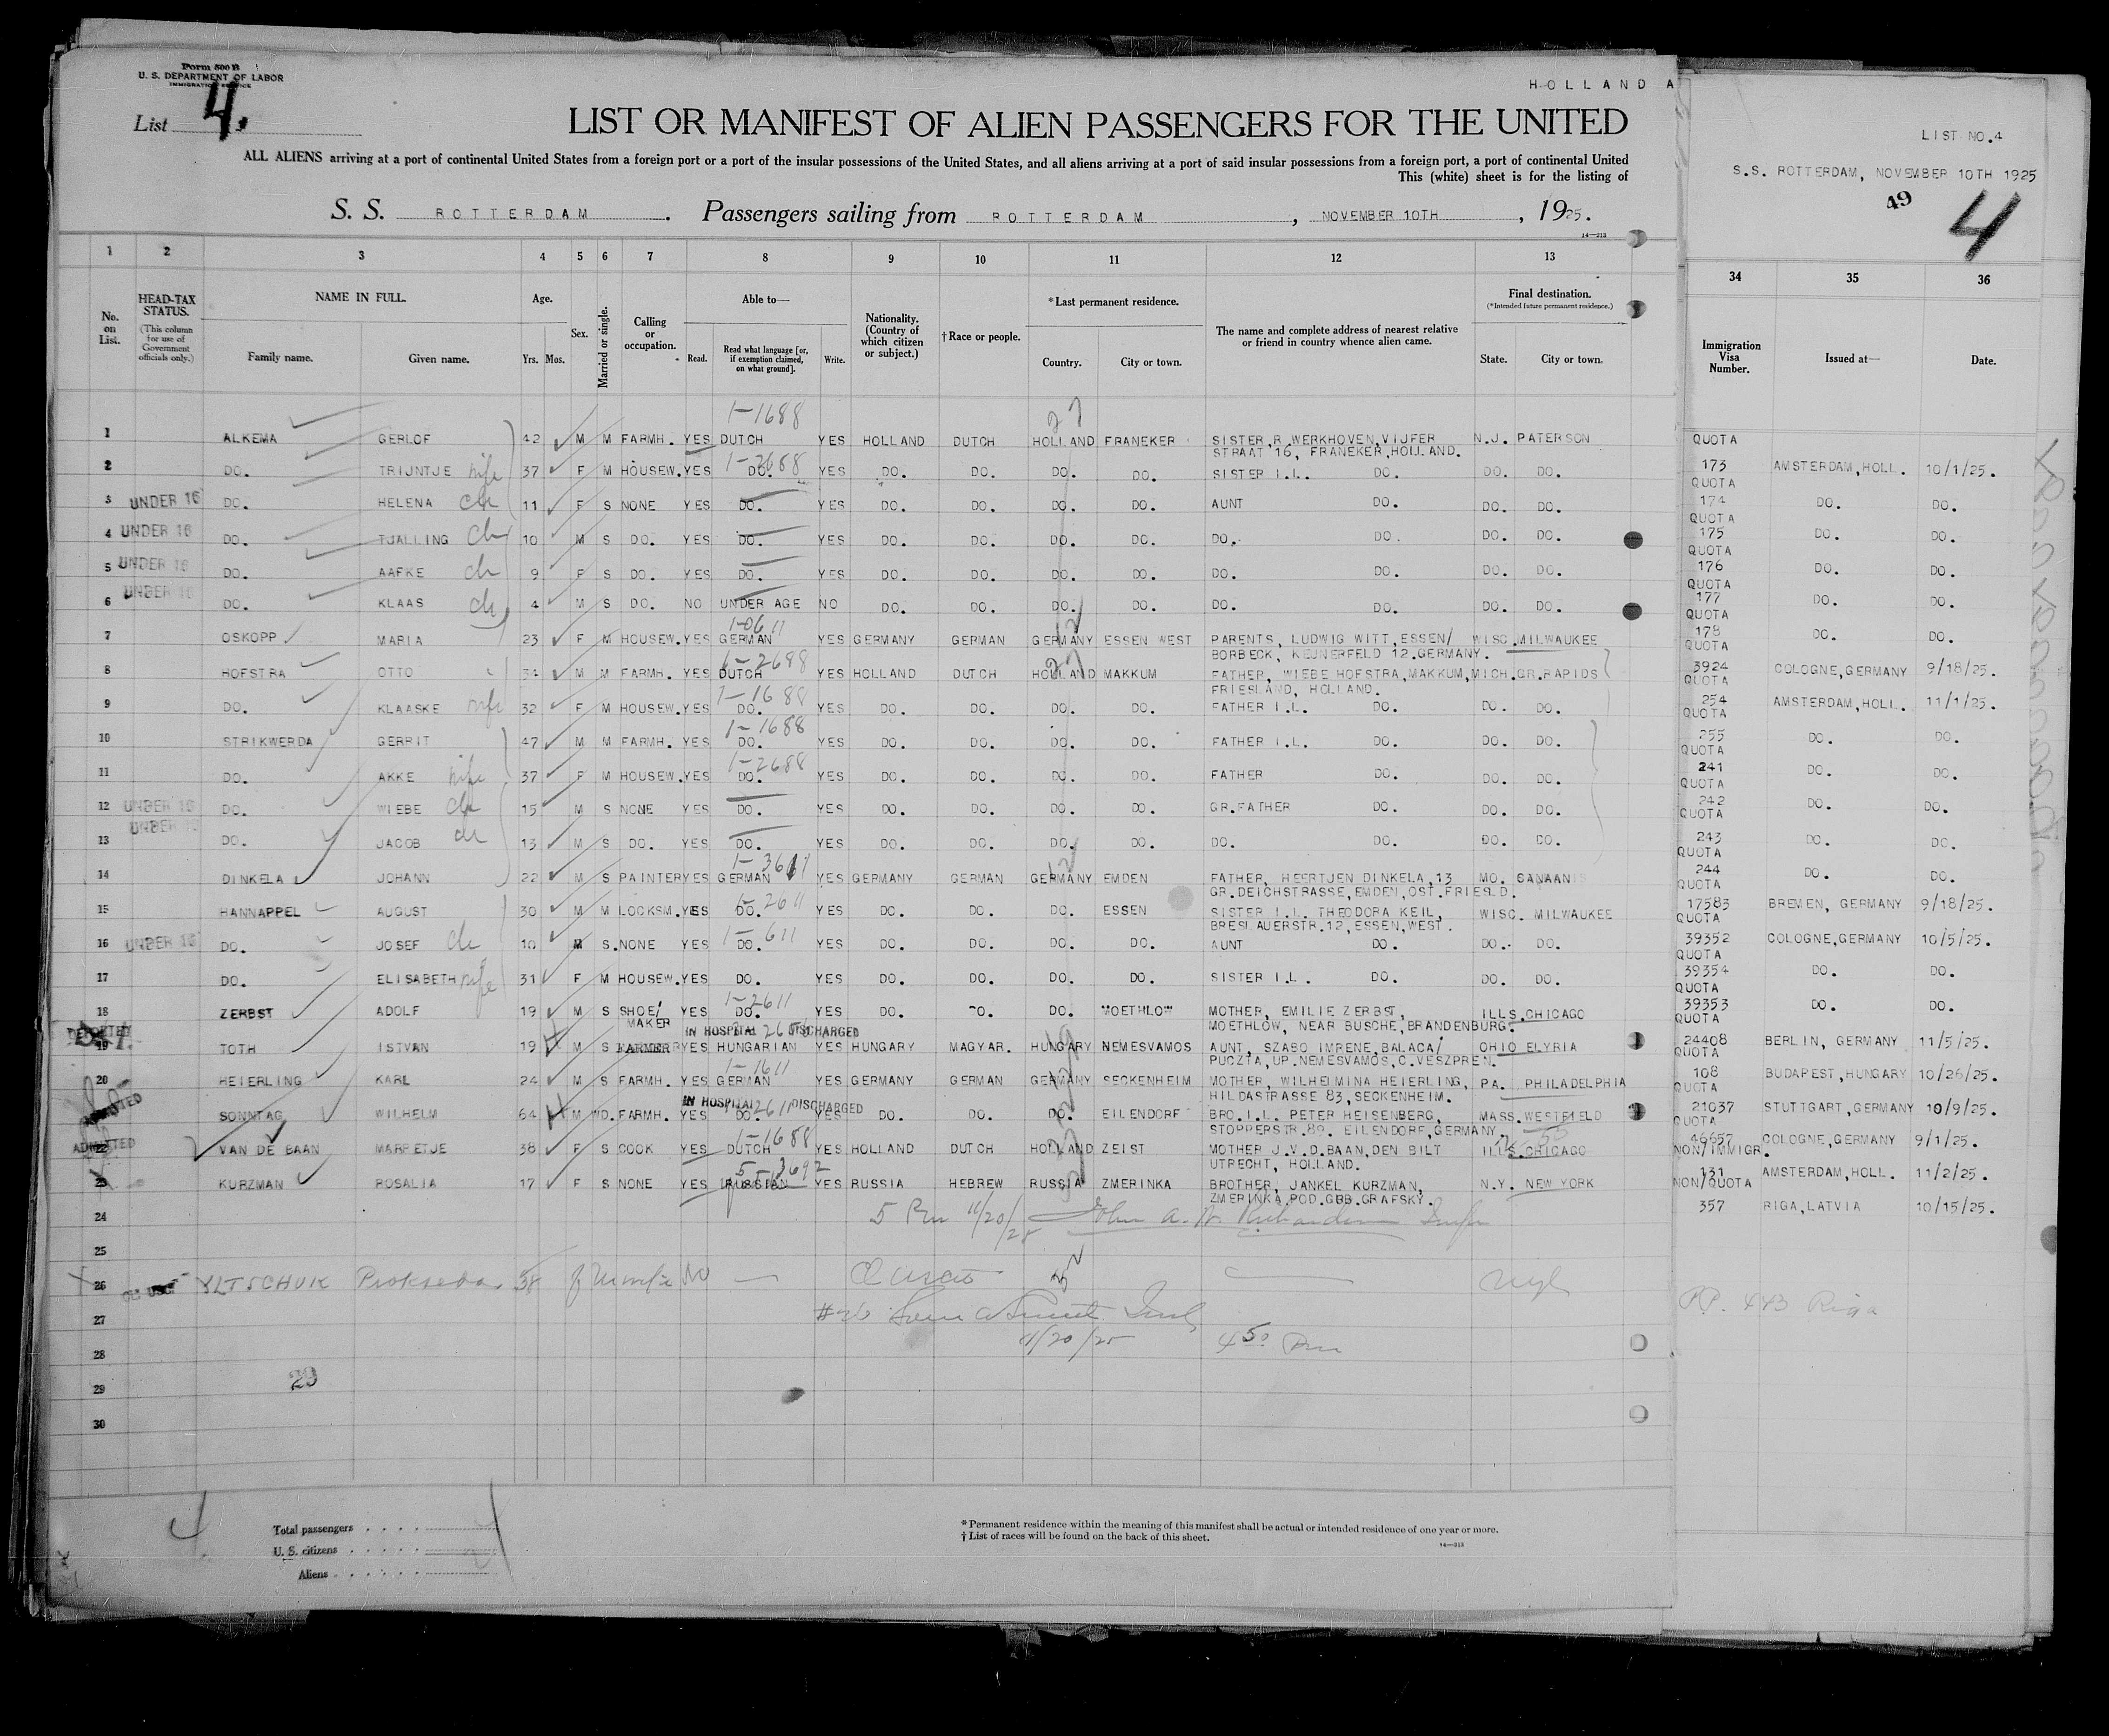 Form 500 B
U. S. DEPARTMENT OF LABOR
IMMIGRATION SERVICE
HOLLAND A
List 4.
LIST OR MANIFEST OF ALIEN PASSENGERS FOR THE UNITED
ALL ALIENS arriving at a port of continental United States from a foreign port or a port of the insular possessions of the United States, and all aliens arriving at a port of said insular possessions from a foreign port, a port of continental United
This (white) sheet is for the listing of
S. S. ROTTERDAM. Passengers sailing from ROTTERDAM, NOVEMBER 10TH, 1925.
14—213
LIST NO.4
S.S. ROTTERDAM, NOVEMBER 10TH 1925
49
4
1 2 3 4 5 6 7 8 9 10 11 12 13 34 35 36
No. on List.
HEAD-TAX STATUS.
(This column for use of Government officials only.)
NAME IN FULL.
Family name. Given name.
Age.
Yrs. Mos.
Sex.
Married or single.
Calling or occupation.
Able to—
Read. Read what language [or, if exemption claimed, on what ground]. Write.
Nationality. (Country of which citizen or subject.)
† Race or people.
*Last permanent residence.
Country. City or town.
The name and complete address of nearest relative or friend in country whence alien came.
Final destination.
(*Intended future permanent residence.)
State. City or town.
Immigration Visa Number.
Issued at—
Date.
1-1688
1 ALKEMA GERLOF 42 M M FARMH. YES DUTCH YES HOLLAND DUTCH HOLLAND FRANEKER SISTER,R.WERKHOVEN,VIJFER N.J. PATERSON QUOTA
STRAAT 16, FRANEKER,HOLLAND.
1-2688
2 DO. TRIJNTJE wife 37 F M HOUSEW. YES DO. YES DO. DO. DO. DO. SISTER I.L. DO. DO. DO. 173 AMSTERDAM,HOLL. 10/1/25.
QUOTA
3 UNDER 16 DO. HELENA ch 11 F S NONE YES DO. YES DO. DO. DO. DO. AUNT DO. DO. DO. 174 DO. DO.
QUOTA
4 UNDER 16 DO. TJALLING ch 10 M S DO. YES DO. YES DO. DO. DO. DO. DO. DO. DO. DO. 175 DO. DO.
QUOTA
5 UNDER 16 DO. AAFKE ch 9 F S DO. YES DO. YES DO. DO. DO. DO. DO. DO. DO. DO. 176 DO. DO.
QUOTA
6 UNDER 16 DO. KLAAS ch 4 M S DO. NO UNDER AGE NO DO. DO. DO. DO. DO. DO. DO. DO. 177 DO. DO.
QUOTA
1-0611
7 OSKOPP MARIA 23 F M HOUSEW. YES GERMAN YES GERMANY GERMAN GERMANY ESSEN WEST PARENTS, LUDWIG WITT, ESSEN/ WISC.MILWAUKEE 178 DO. DO.
BORBECK, KEUNERFELD 12.GERMANY. QUOTA
1-2688
8 HOFSTRA OTTO 34 M M FARMH. YES DUTCH YES HOLLAND DUTCH HOLLAND MAKKUM FATHER, WIEBE HOFSTRA,MAKKUM, MICH.GR.RAPIDS 3924 COLOGNE,GERMANY 9/18/25.
FRIESLAND, HOLLAND. QUOTA
1-1688
9 DO. KLAASKE wife 32 F M HOUSEW. YES DO. YES DO. DO. DO. DO. FATHER I.L. DO. DO. DO. 254 AMSTERDAM,HOLL. 11/1/25.
QUOTA
1-1688
10 STRIKWERDA GERRIT 47 M M FARMH. YES DO. YES DO. DO. DO. DO. FATHER I.L. DO. DO. DO. 255 DO. DO.
QUOTA
1-2688
11 DO. AKKE wife 37 F M HOUSEW. YES DO. YES DO. DO. DO. DO. FATHER DO. DO. DO. 241 DO. DO.
QUOTA
12 UNDER 16 DO. WIEBE ch 15 M S NONE YES DO. YES DO. DO. DO. DO. GR.FATHER DO. DO. DO. 242 DO. DO.
QUOTA
13 UNDER 16 DO. JACOB ch 13 M S DO. YES DO. YES DO. DO. DO. DO. DO. DO. DO. DO. 243 DO. DO.
QUOTA
1-3611
14 DINKELA JOHANN 22 M S PAINTER YES GERMAN YES GERMANY GERMAN GERMANY EMDEN FATHER, HEERTJEN DINKELA,13 MO. CANAAN 244 DO. DO.
GR.DEICHSTRASSE,EMDEN,OST.FRIESLD. QUOTA
1-2611
15 HANNAPPEL AUGUST 30 M M LOCKSM. YES DO. YES DO. DO. DO. ESSEN SISTER I.L. THEODORA KEIL, WISC. MILWAUKEE 17583 BREMEN, GERMANY 9/18/25.
BRESLAUERSTR.12,ESSEN,WEST. QUOTA
1-611
16 UNDER 16 DO. JOSEF ch 10 M S. NONE YES DO. YES DO. DO. DO. DO. AUNT DO. DO. DO. 39352 COLOGNE,GERMANY 10/5/25.
QUOTA
17 DO. ELISABETH wife 31 F M HOUSEW. YES DO. YES DO. DO. DO. DO. SISTER I.L. DO. DO. DO. 39354 DO. DO.
QUOTA
1-2611
18 ZERBST ADOLF 19 M S SHOE/ YES DO. YES DO. DO. DO. MOETHLOW MOTHER, EMILIE ZERBST, ILLS.CHICAGO 39353 DO. DO.
MAKER MOETHLOW, NEAR BUSCHE,BRANDENBURG. QUOTA
DEPORTED IN HOSPITAL DISCHARGED
19 TOTH ISTVAN 19 M S FARMER YES HUNGARIAN YES HUNGARY MAGYAR. HUNGARY NEMESVAMOS AUNT, SZABO IMRENE,BALACA/ OHIO ELYRIA 24408 BERLIN, GERMANY 11/5/25.
PUCZTA,UP.NEMESVAMOS,C.VESZPREN. QUOTA
1-1611
20 HEIERLING KARL 24 M S FARMH. YES GERMAN YES GERMANY GERMAN GERMANY SECKENHEIM MOTHER, WILHELMINA HEIERLING, PA. PHILADELPHIA 108 BUDAPEST,HUNGARY 10/26/25.
HILDASTRASSE 83,SECKENHEIM. QUOTA
ADMITTED IN HOSPITAL 2611 DISCHARGED
SONNTAG WILHELM 64 M WD. FARMH. YES DO. YES DO. DO. DO. EILENDORF BRO.I.L. PETER HEISENBERG, MASS.WESTFIELD 21037 STUTTGART,GERMANY 10/9/25.
STOPPERSTR.89. EILENDORF,GERMANY QUOTA
1-1688
ADMITTED 22 VAN DE BAAN MARRETJE 38 F S COOK YES DUTCH YES HOLLAND DUTCH HOLLAND ZEIST MOTHER J.V.D.BAAN,DEN BILT ILLS.CHICAGO 46657 COLOGNE,GERMANY 9/1/25.
UTRECHT, HOLLAND. NON/IMMIGR.
5-3692
23 KURZMAN ROSALIA 17 F S NONE YES RUSSIAN YES RUSSIA HEBREW RUSSIA ZMERINKA BROTHER, JANKEL KURZMAN, N.Y. NEW YORK 131 AMSTERDAM,HOLL. 11/2/25.
ZMERINKA,POD.GBB.GRAFSKY. NON/QUOTA
24 5 Pm 11/20/25 John A. W. Richardson Insp 357 RIGA,LATVIA 10/15/25.
25
26 YLTSCHUK Prokseba 38 f M wife No — — NYC PP. 443 Riga
27 #26
28 11/20/25 4 50 Pm
29 23
30
Total passengers
U. S. citizens
Aliens
*Permanent residence within the meaning of this manifest shall be actual or intended residence of one year or more.
† List of races will be found on the back of this sheet.
14—213